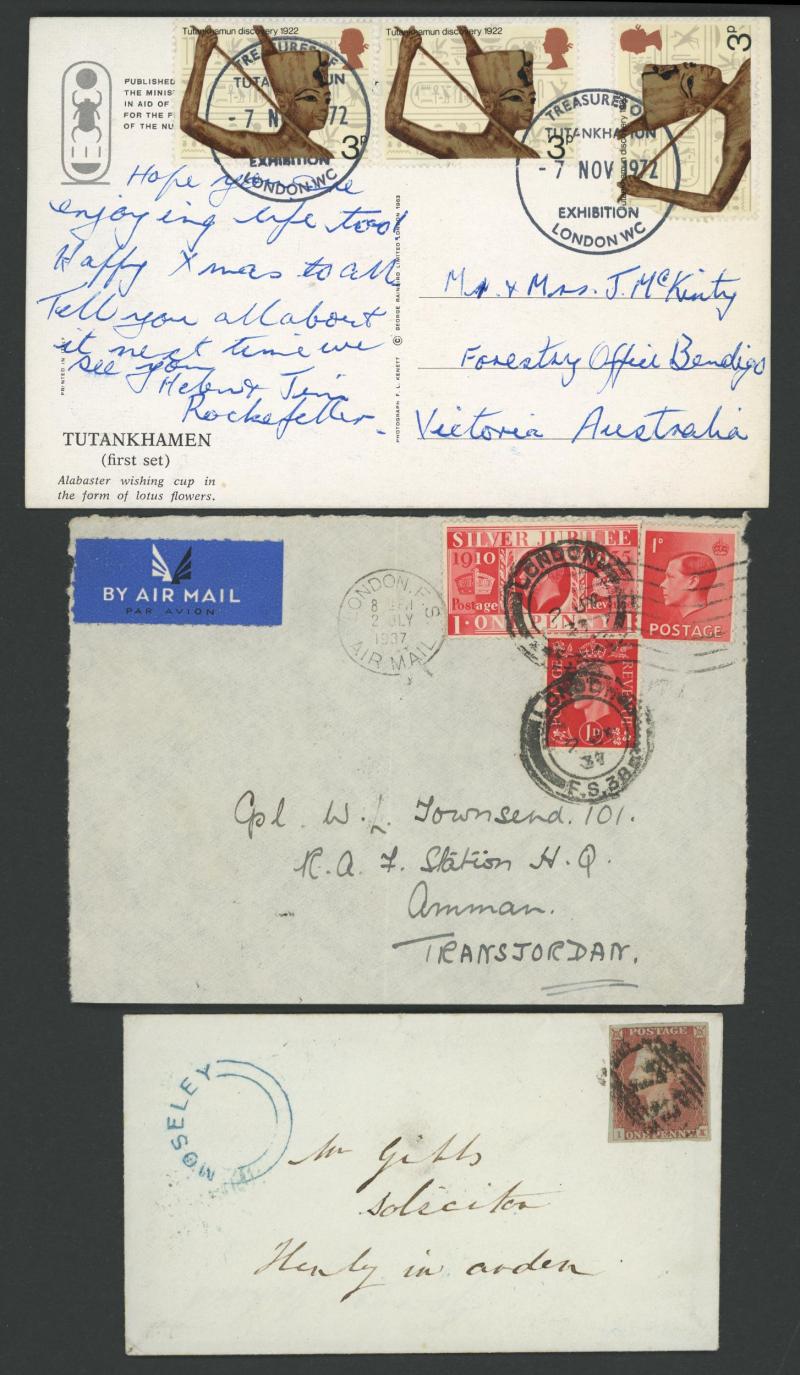 PUBLISHED
THE MINIS
IN AID OF
FOR THE P
OF THE NU
Tutankhamun discovery 1922
3P
Tutankhamun discovery 1922
3P
Tutankhamun discovery
3P
TREASURES OF
TUTANKHAMUN
- 7 N 72
EXHIBITION
LONDON WC
TREASURES O
TUTANKHAMUN
- 7 NOV 1972
EXHIBITION
LONDON WC
Hope you are
enjoying life too!
Happy Xmas to all
Tell you all about
it next time we
see you
Helen & Jim
Rockefeller
TUTANKHAMEN
(first set)
Alabaster wishing cup in
the form of lotus flowers.
PRINTED IN
PHOTOGRAPH F. L. KENETT © GEORGE RAINBIRD LIMITED LONDON 1963
Mr. & Mrs. J. McKinty
Forestry Office Bendigo
Victoria Australia
BY AIR MAIL
PAR AVION
LONDON. F.S
2 JLY
1937
AIR MAIL
SILVER JUBILEE
1910 35
Postage Rev
1 · ONE PENNY
1D
POSTAGE
REVENUE
1D
LONDON
37
LONDON
37
F.S.38
Cpl. W. L. Townsend. 101.
R.A.F. Station H.Q.
Amman.
TRANSJORDAN.
MOSELEY
POSTAGE
ONE PENNY
Mr Gibbs
Solicitor
Henly in arden